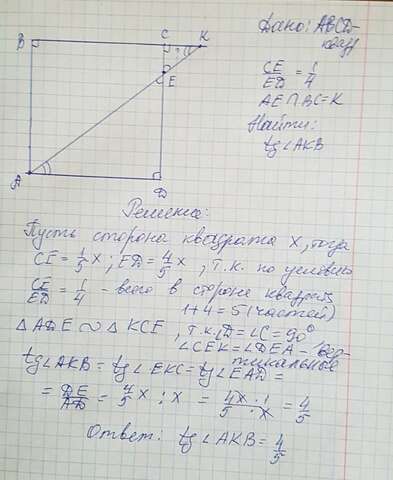 Дано: ABCD-
квадр
CE/ED = 1/4
AE∩BC=K
Найти:
tg∠AKB
B
C
K
E
A
D
Решение:
Пусть сторона квадрата x, тогда
CE = 1/5 x ; ED = 4/5 x , т.к. по условию
CE/ED = 1/4 - всего в стороне квадрата
1+4=5 (частей)
△ADE ∾ △KCE , т.к. ∠D=∠C=90°
∠CEK=∠DEA - вер-
тикальные
tg∠AKB = tg∠EKC = tg∠EAD =
= DE/AD = 4/5 x : x = 4x · 1/5 · x = 4/5
Ответ: tg∠AKB = 4/5